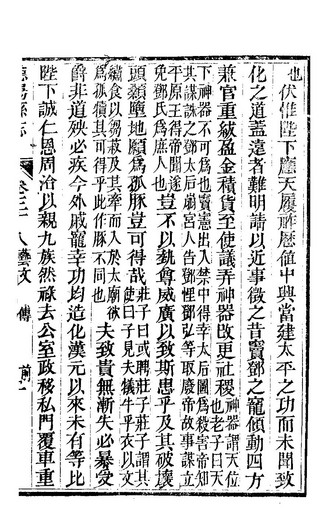 也伏惟陛下應天履祚歷值中興當建太平之功而未聞致
化之道蓋遠者難明請以近事徵之昔竇鄧之寵傾動四方
兼官重紱盈金積貨至使議弄神器改更社稷神器謂天位也老子曰天
下神器不可爲也竇憲出入禁中得幸太后圖爲殺害帝知
其謀誅之鄧太后崩宮人告鄧悝鄧弘等取廢帝故事謀立
平原王得帝聞遂免鄧氏爲庶人也豈不以埶尊威廣以致斯患乎及其破壞
頭顙墮地願爲孤豚豈可得哉莊子曰或聘莊子莊子謂其使曰子見夫犧牛乎衣以文
繡食以芻菽及其牽而入於太廟欲爲孤犢其可得乎此作豚不同也夫致貴無漸失必暴受
爵非道殃必疾今外戚寵幸功均造化漢元以來未有等比
陛下誠仁恩周洽以親九族然祿去公室政移私門覆車重
縣志 卷三十 藝文 傳